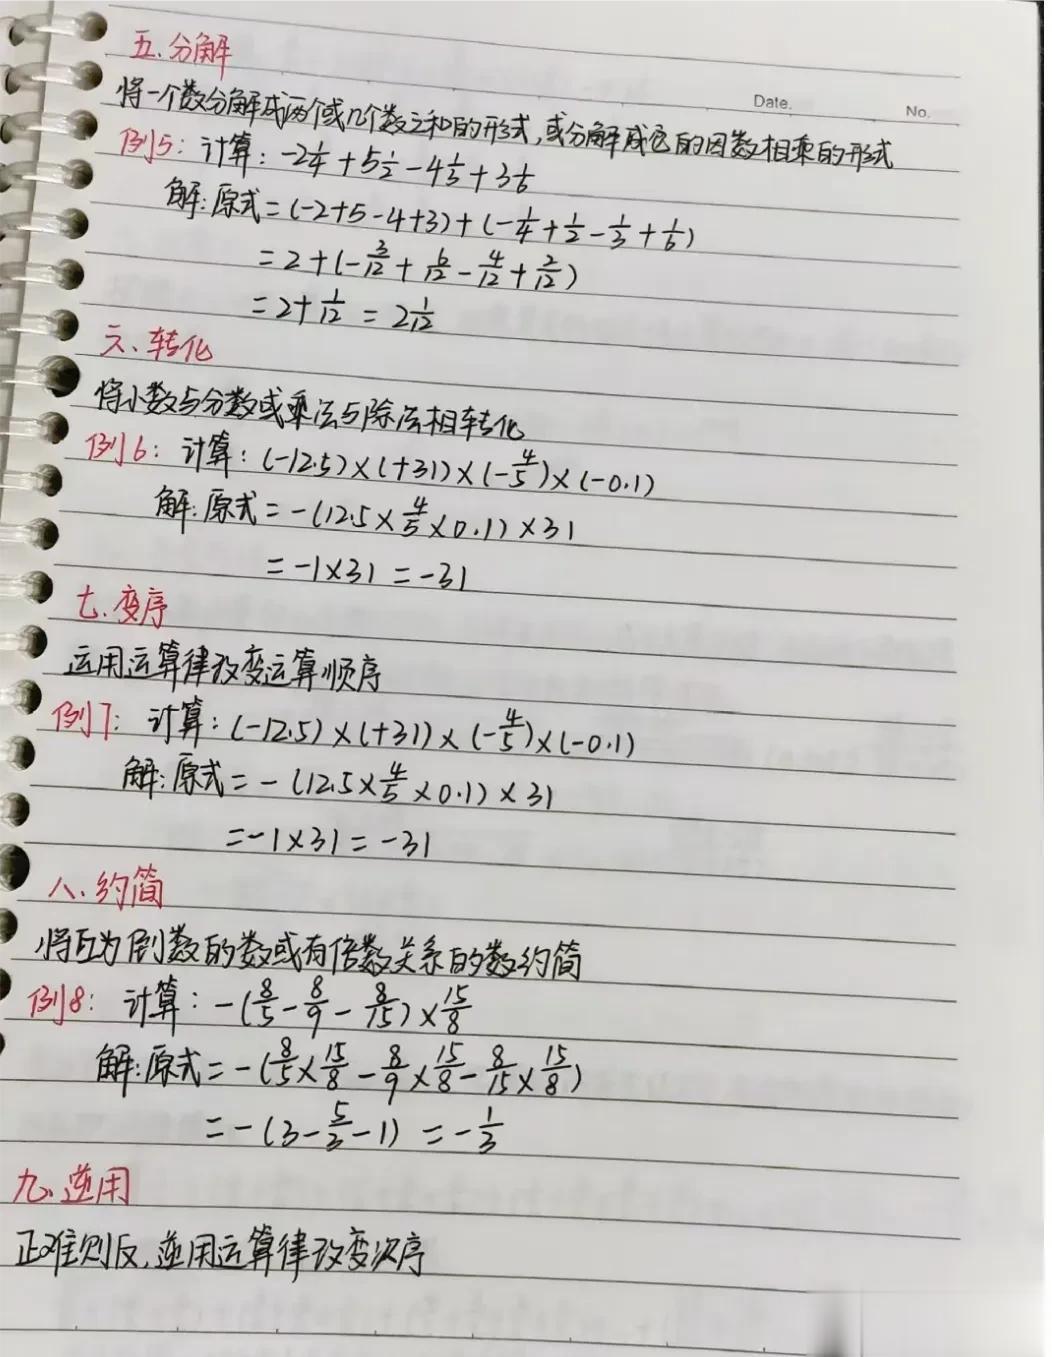 五.分解
Date.
No.
将一个数分解成两个或几个数之和的形式,或分解成它的因数相乘的形式
例5: 计算: -2 1/4 + 5 1/2 - 4 1/3 + 3 1/6
解:原式=(-2+5-4+3)+(-1/4+1/2-1/3+1/6)
=2+(-3/12+6/12-4/12+2/12)
=2+1/12 = 2 1/12
六、转化
将小数与分数或乘法与除法相转化
例6: 计算: (-12.5)×(+31)×(-4/5)×(-0.1)
解:原式=-(12.5×4/5×0.1)×31
=-1×31=-31
七.变序
运用运算律改变运算顺序
例7: 计算:(-12.5)×(+31)×(-4/5)×(-0.1)
解:原式=-(12.5×4/5×0.1)×31
=-1×31=-31
八.约简
将互为倒数的数或有倍数关系的数约简
例8: 计算: -(8/5-8/9-8/15)×15/8
解:原式=-(8/5×15/8-8/9×15/8-8/15×15/8)
=-(3-5/3-1) = -1/3
九.逆用
正难则反,逆用运算律改变次序